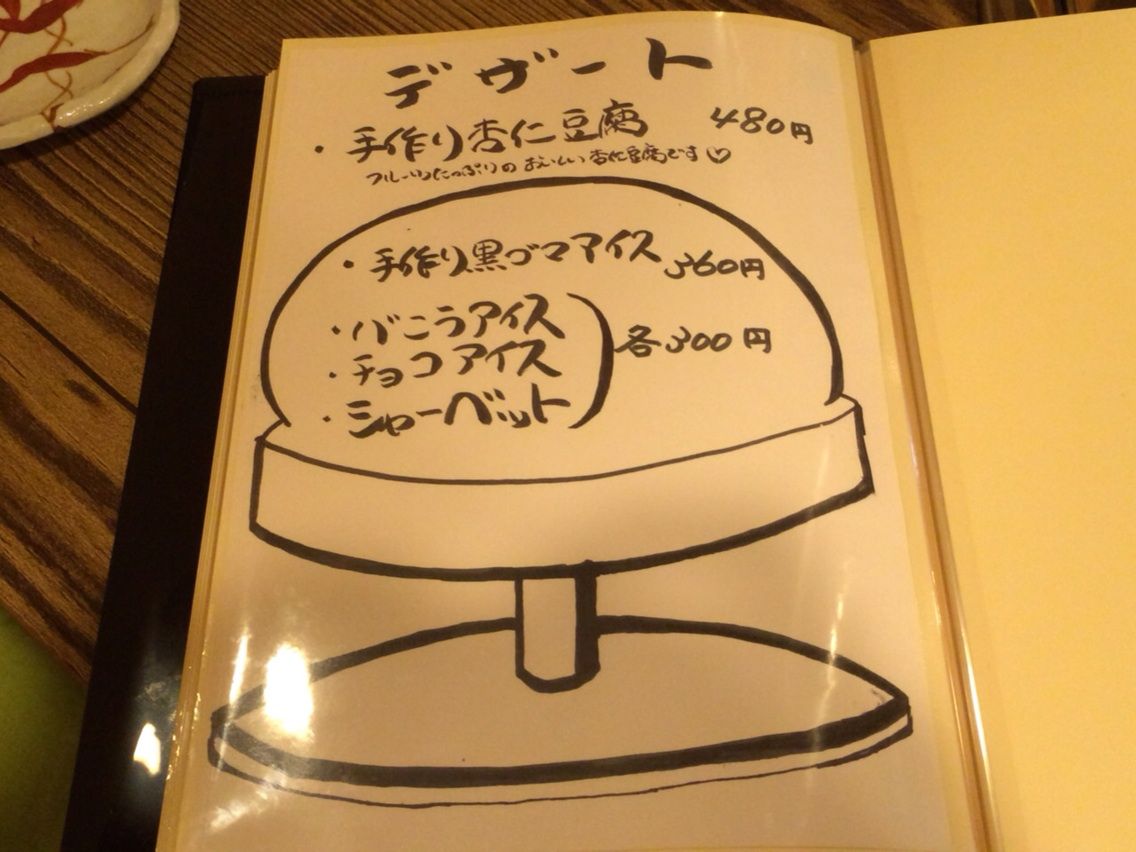 デザート
・手作り杏仁豆腐 480円
フルーツたっぷりの おいしい 杏仁豆腐です♡
・手作り黒ゴマアイス 360円
・バニラアイス
・チョコアイス
・シャーベット
各300円